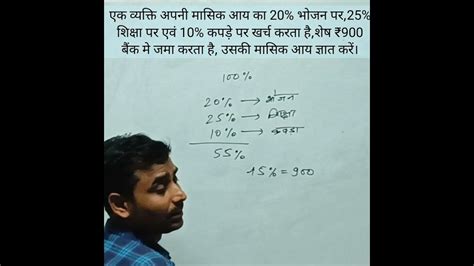 एक व्यक्ति अपनी मासिक आय का 20% भोजन पर,25%
शिक्षा पर एवं 10% कपड़े पर खर्च करता है,शेष ₹900
बैंक मे जमा करता है, उसकी मासिक आय ज्ञात करें।
100%
20% → भोजन
25% → शिक्षा
10% → कपड़ा
55%
45% = 900